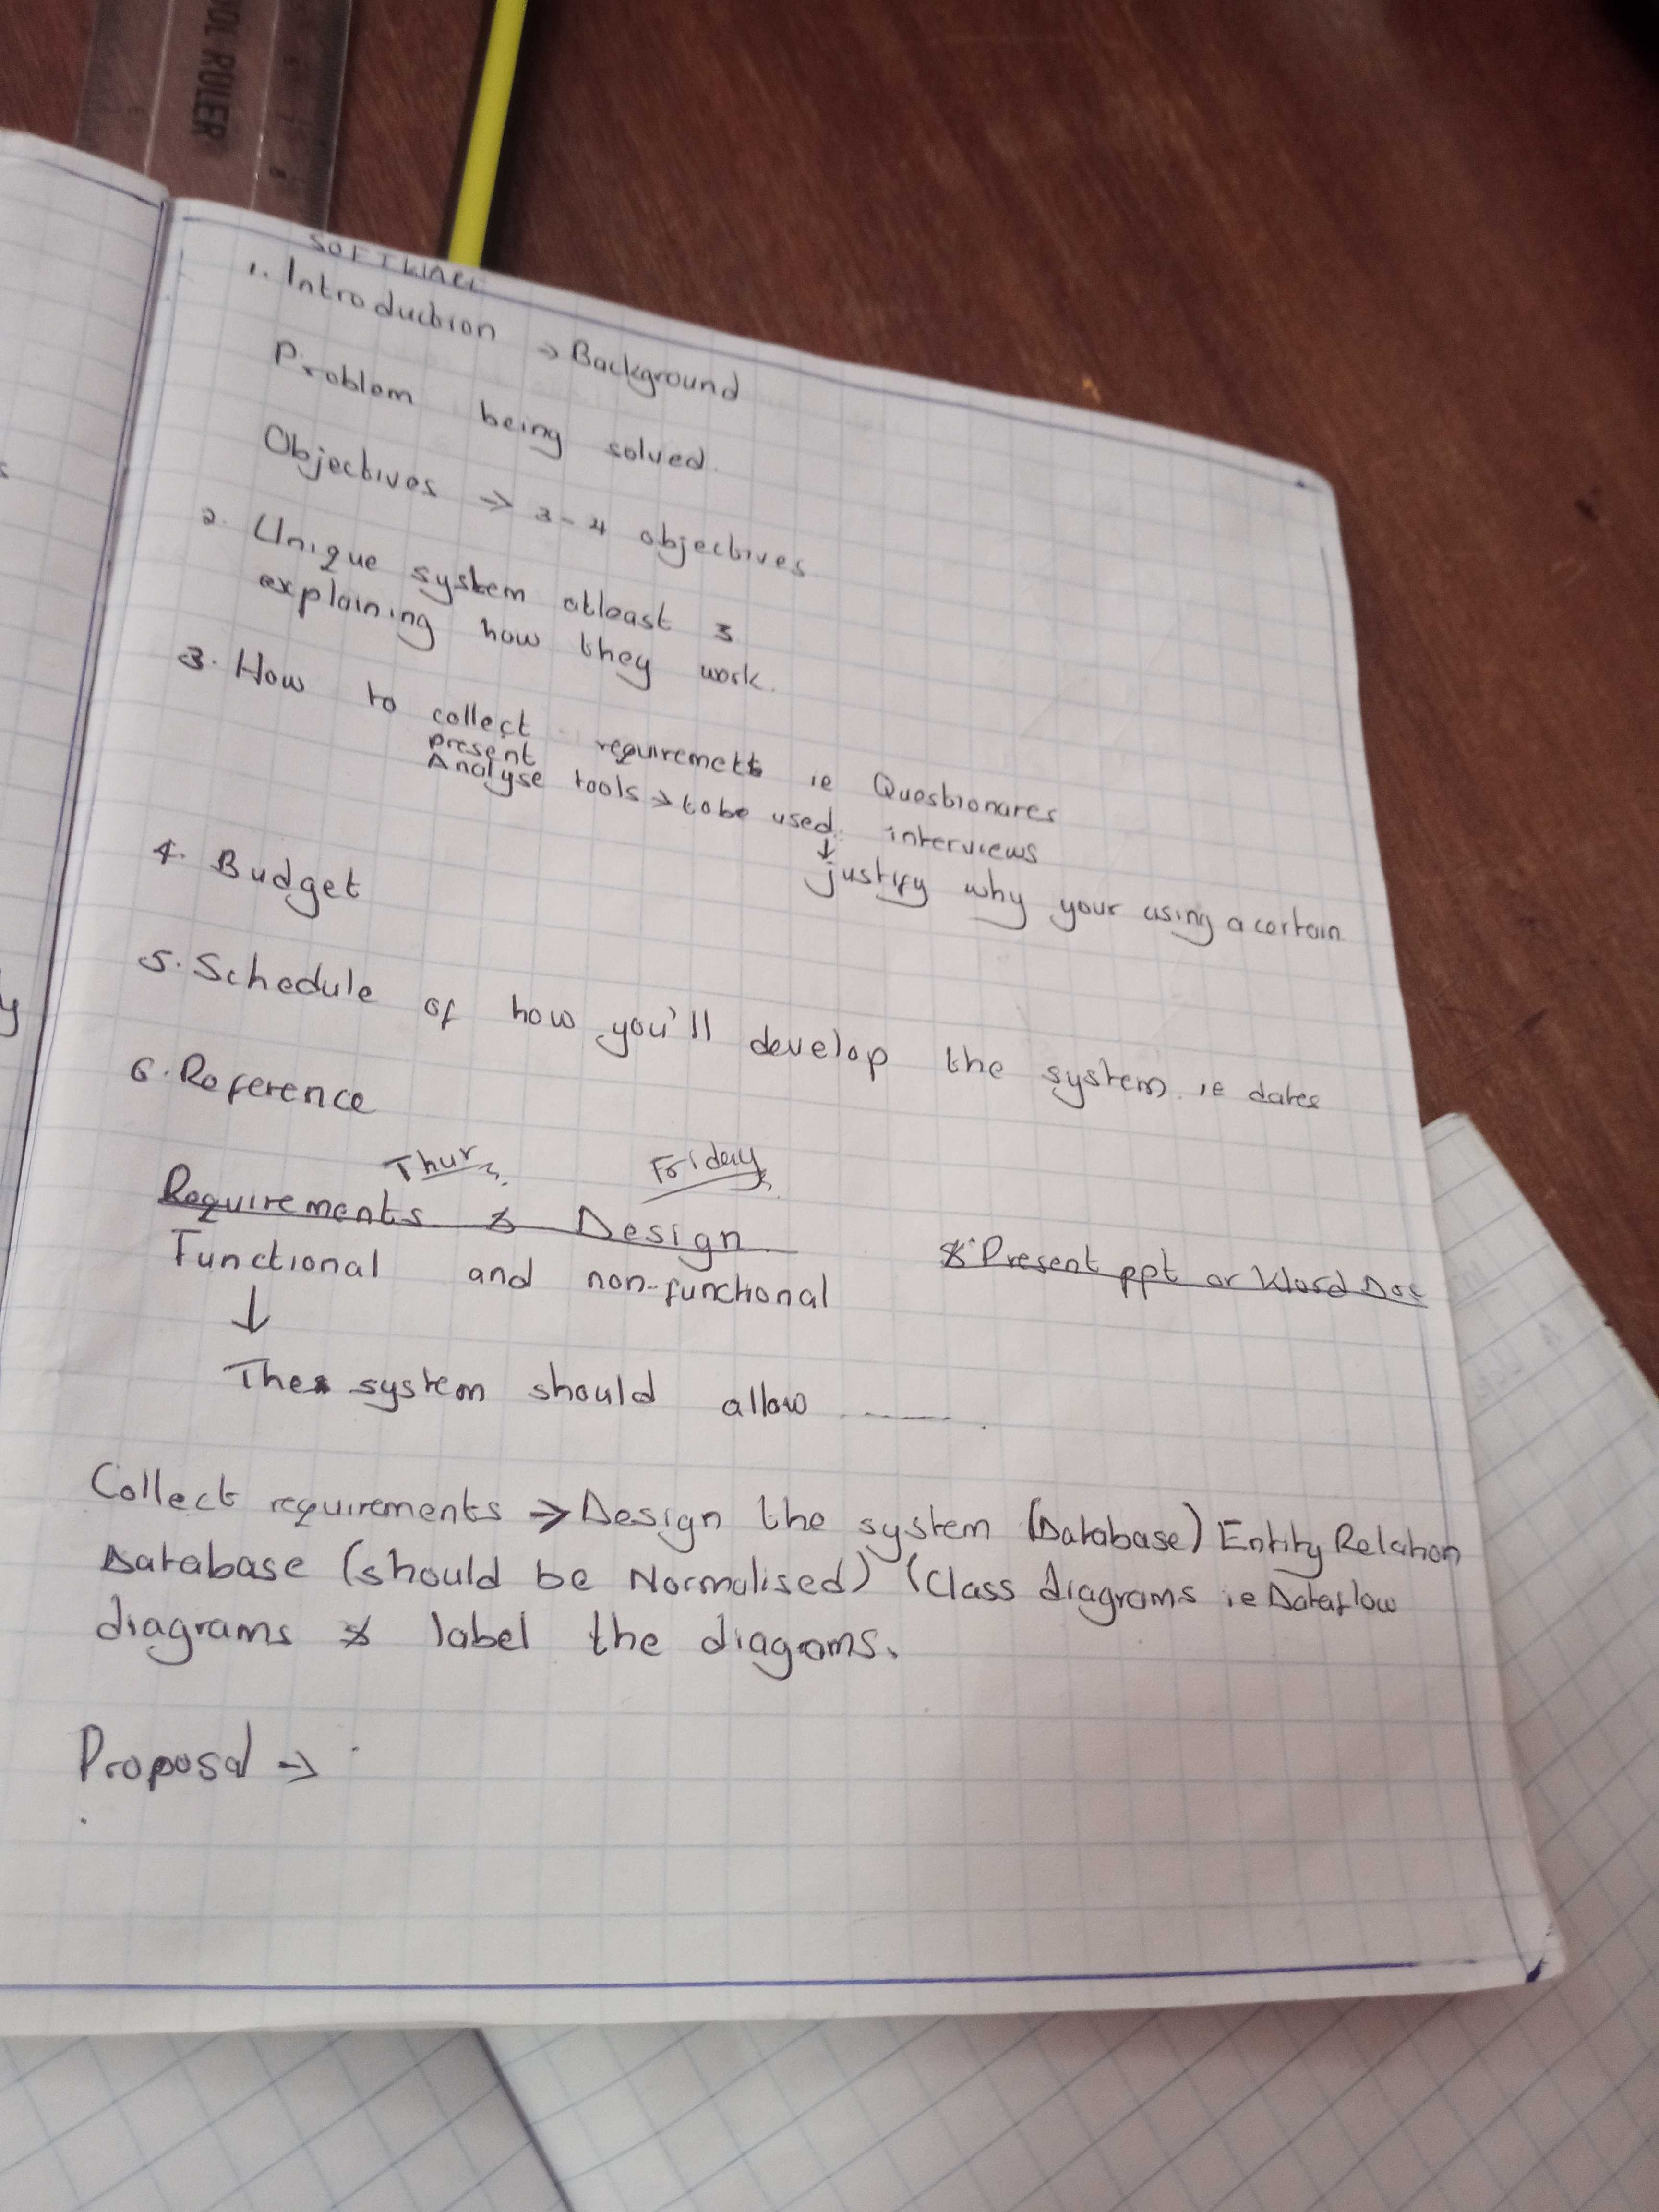 OOL RULER
SOFTWARE
1. Introduction → Background
Problem being solved.
Objectives → 3-4 objectives
2. Unique system atleast 3
explaining how they work.
3. How to collect requiremets ie Questionares
present
Analyse tools → to be used. interviews
↓
justify why your using a certain
4. Budget
5. Schedule of how you'll develop the system. ie dates
6. Reference
Thur, Friday,
Requirements & Design
Functional and non-functional
&. Present ppt or Word Doc
↓
The system should allow ........
Collect requirements → Design the system (Database) Entity Relation
Database (should be Normalised) (Class diagrams ie Dataflow
diagrams & label the diagrams.
Proposal →